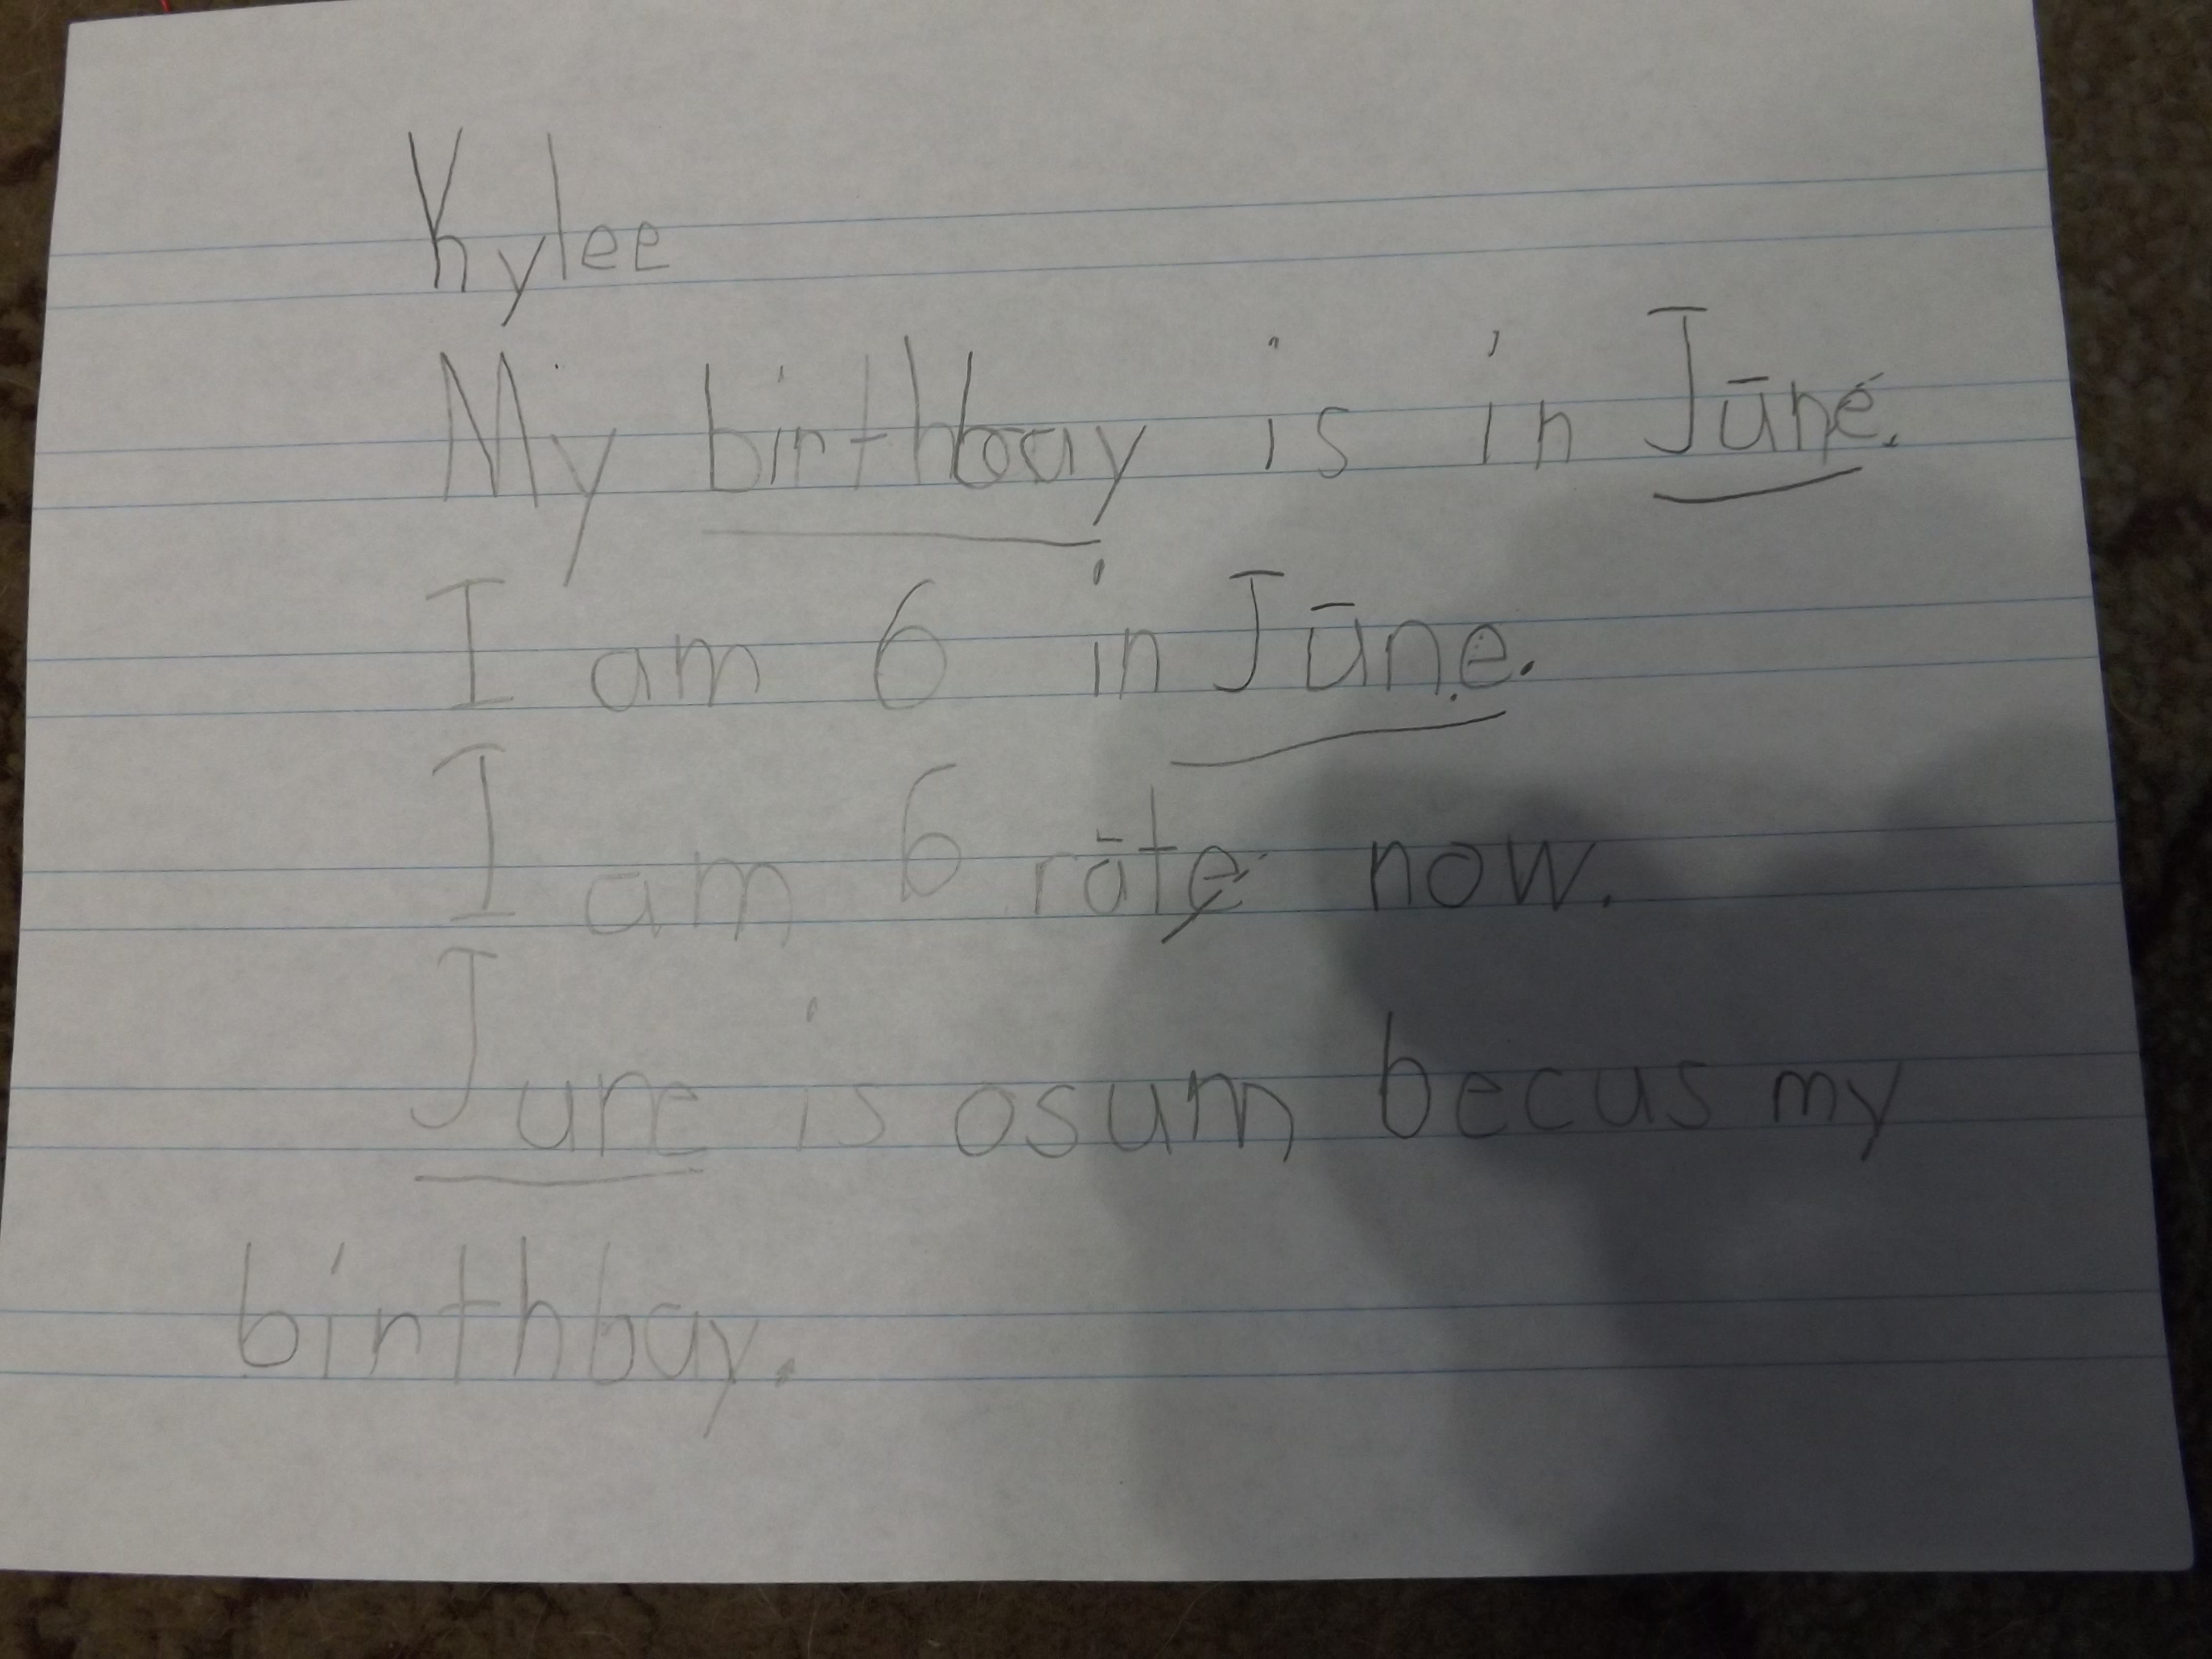 Kylee
My birthbay is in Jūne.
I am 6 in Jūne.
I am 6 rāte now.
June is osum becus my
birthbay.